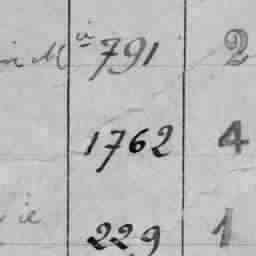 Mie 791 2
1762 4
ie 229 1